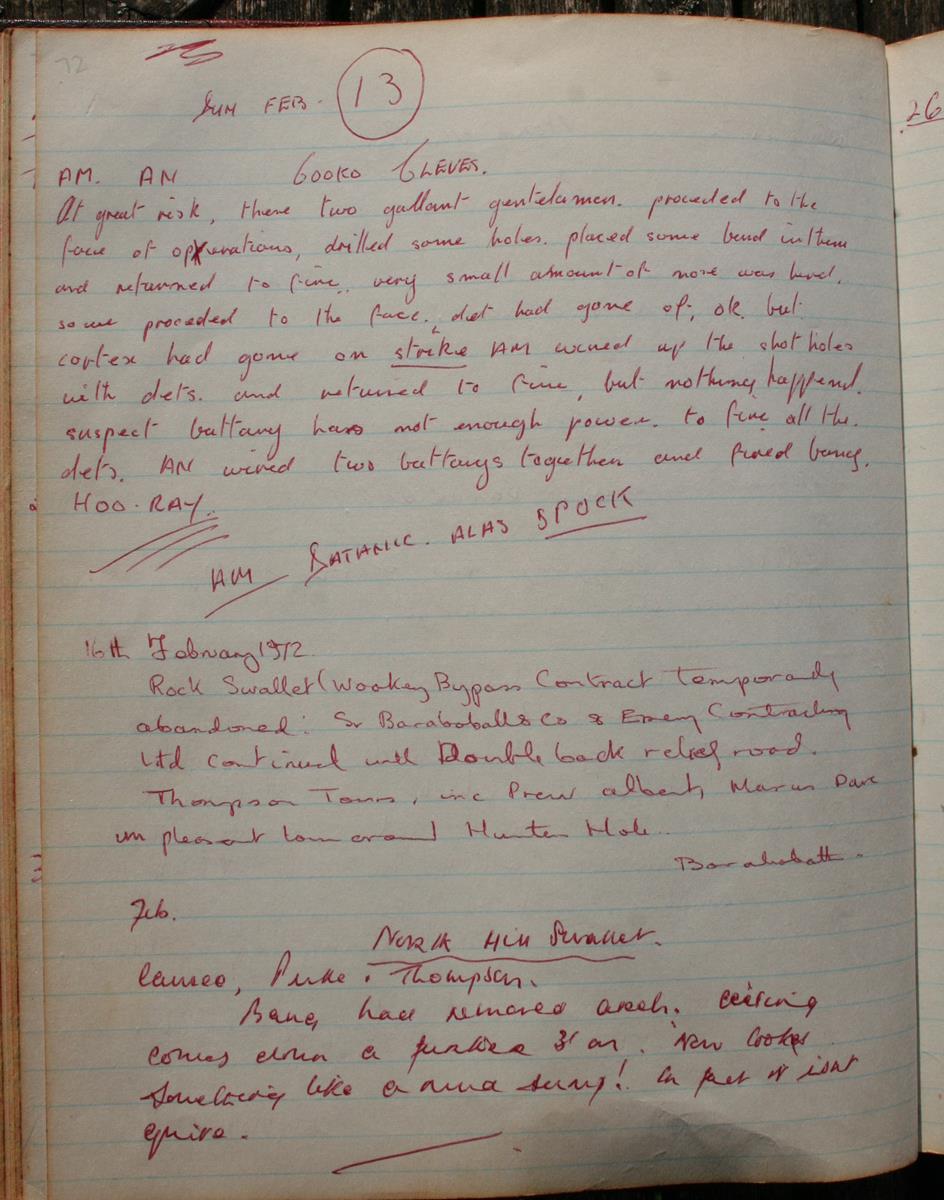 72
SUN FEB. 13
26
AM. AN GOOKO CLEVES.
At great risk, these two gallant gentelamen. proceded to the
face of operations, drilled some holes. placed some band in them
and returned to fire. very small amount of nose was herd.
so we proceded to the face. det had gone of, ok. but
cortex had gone on strike AM wired up the shot holes
with dets. and returned to fire, but nothing happend.
suspect battary has not enough power. to fire all the.
dets. AN wired two battarys together and fired bang.
HOO-RAY.
AM SATANIC. ALAS SPOCK
16th February 1972
Rock Swallet (Wookey Bypass Contract temporarily
abandoned: Sr Baraboballs Co & Emery Contracting
Ltd continued with Double back relief road.
Thompson Tours, inc Prew albert, Marcus Dave
un pleasant around Hunters Hole..
Feb.
North Hill Swallet.
Cameo, Puke & Thompson.
Bang had removed arch. Ceiling
comes down a further 3' or. Now looks
something like a mud sump! In fact it isn't
quite.